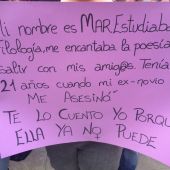 Mi nombre es MAR. Estudiaba
Filología, me encantaba la poesía y
salir con mis amig@s. Tenía
21 años cuando mi ex-novio
ME ASESINÓ
TE LO CUENTO YO PORQUE
ELLA YA NO PUEDE